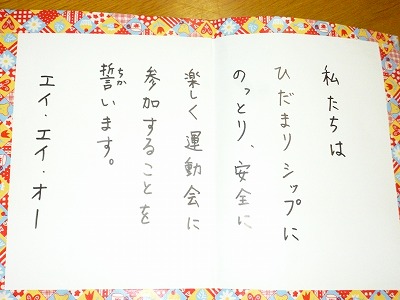 私たちは
ひだまりシップに
のっとり、安全に
楽しく運動会に
参加することを
誓います。
ちか
エイ・エイ・オー